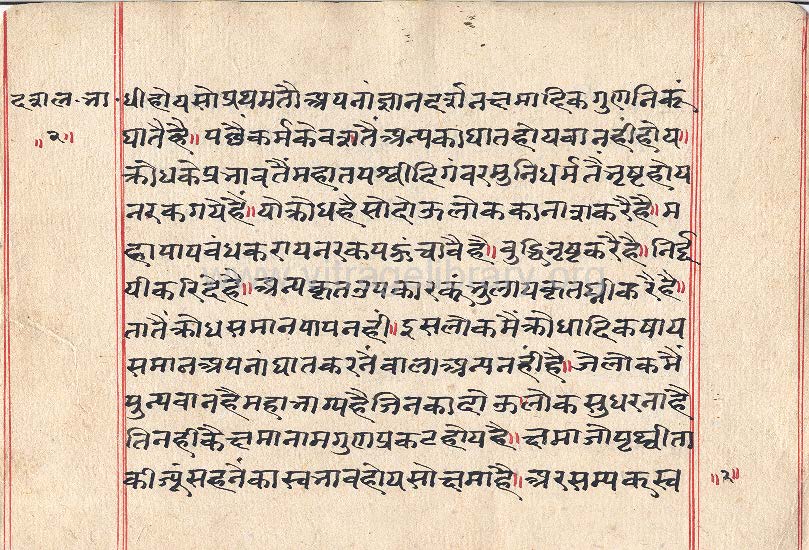 दशल.भा.
॥२॥
धी होय सो प्रथम तौ अपनां ज्ञान दर्शन क्षमादिक गुणनिकूं
घातै है॥ पछै कर्म के वशतैं अन्य का घात होय वा नहीं होय॥
क्रोध के प्रभावतैं महातपश्वी दिगंवर मुनि धर्मतैं भृष्ट होय
नरक गये हैं॥ यो क्रोध है सो दोऊ लोक का नाश करै है॥ म
हा पाप वंध कराय नरक पऊंचावै है॥ वुद्धि भृष्ट करै है॥ निर्द्द
यी करि दे है॥ अन्यकृत उपकारकूं भुलाय कृतघ्नी करै है॥
तातैं क्रोध समान पाप नहीं॥ इस लोक मैं क्रोधादि कषाय
समान अपनां घात करनें वाला अन्य नहीं है॥ जे लोक मैं
पुन्यवान है महाभाग्य है जिनका दोऊ लोक सुधरना है
तिनही कै क्षमा नाम गुण प्रकट होय है॥ क्षमा जो पृथ्वीता
की ज्यूं सहनें का स्वभाव होय सो क्षमा है॥ अर सम्यक स्व
॥२॥
www.vitragelibrary.org